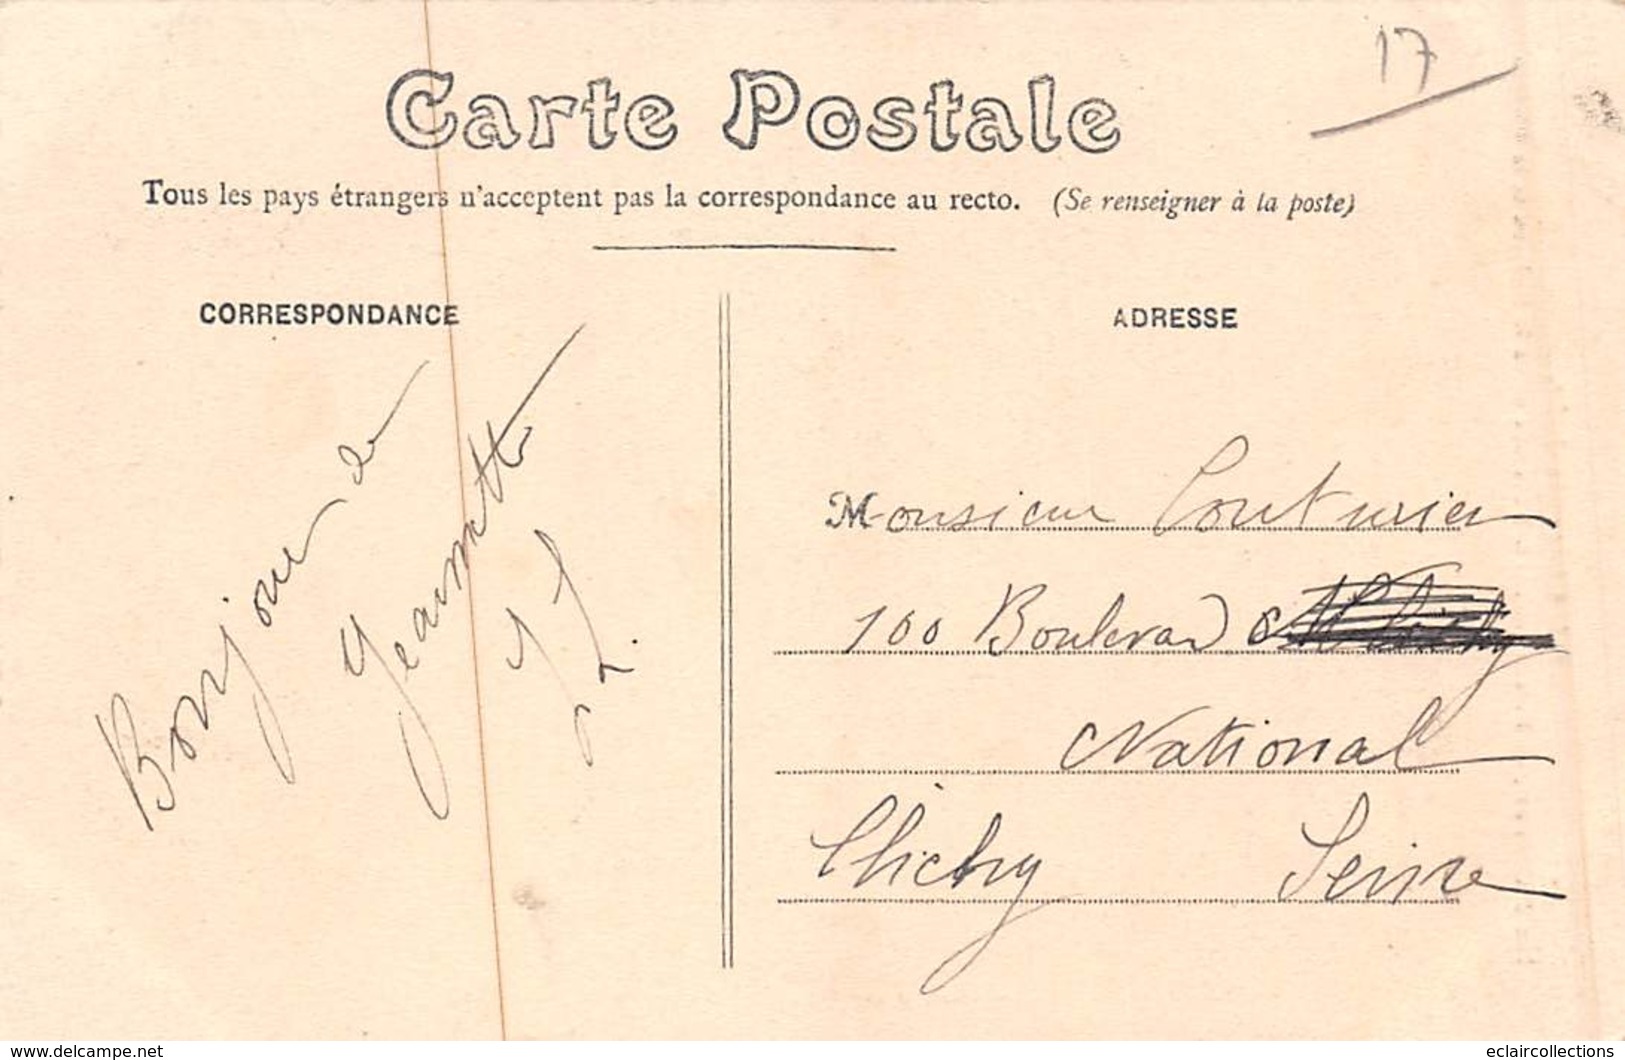 17
Carte Postale
Tous les pays étrangers n'acceptent pas la correspondance au recto. (Se renseigner à la poste)
CORRESPONDANCE
Bonjour de
Jeannette
ADRESSE
Monsieur Couturier
100 Boulevard
National
Clichy Seine
www.delcampe.net
eclaircollections